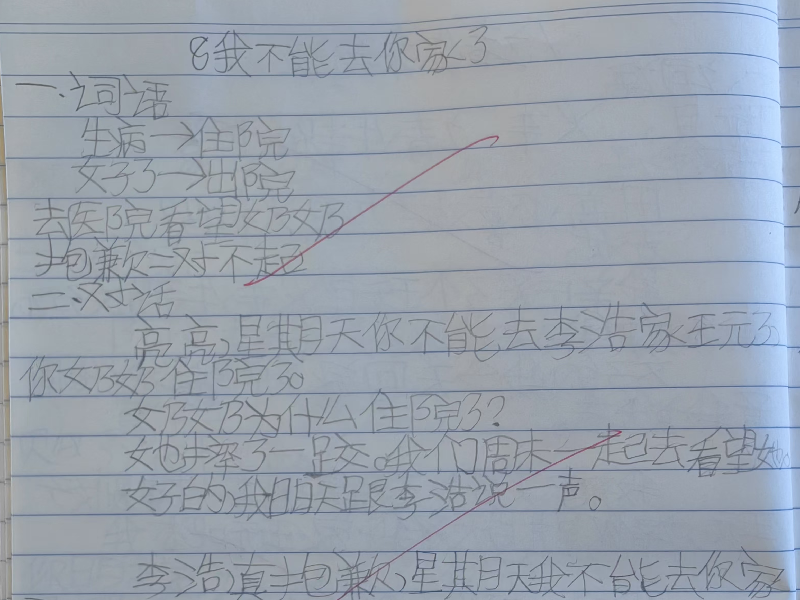 8我不能去你家了
一、词语
生病→住院
好了→出院
去医院看望奶奶
抱歉=对不起
二、对话
亮亮，星期天你不能去李浩家王元了
你奶奶住院了。
奶奶为什么住院了？
她摔了一跤。我们周末一起去看望她。
好的，我明天跟李浩说一声。
李浩，真抱歉，星期天我不能去你家